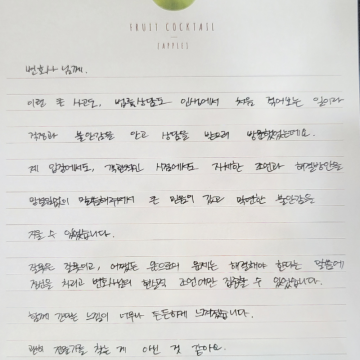 FRUIT COCKTAIL
[APPLE]
변호사 님께.
이런 큰 사고도, 법률상담도 인생에서 처음 겪어보는 일이라
걱정과 불안감을 안고 상담을 받으러 방문했었는데요.
제 입장에서도, 객관적인 시점에서도 자세한 조언과 해결방안을
말씀해주셔서 큰 믿음이 갔고 막연한 불안감을
있었습니다.
잘못은 잘못이고, 어쨌든 앞으로의 문제는 해결해야 한다는 말씀에
정신을 차리고 변호사님의 현실적 조언에만 집중할 수 있었습니다.
함께 간다는 느낌이 너무나 든든하게 느껴졌습니다.
찾는 게 아닌 것 같아요.